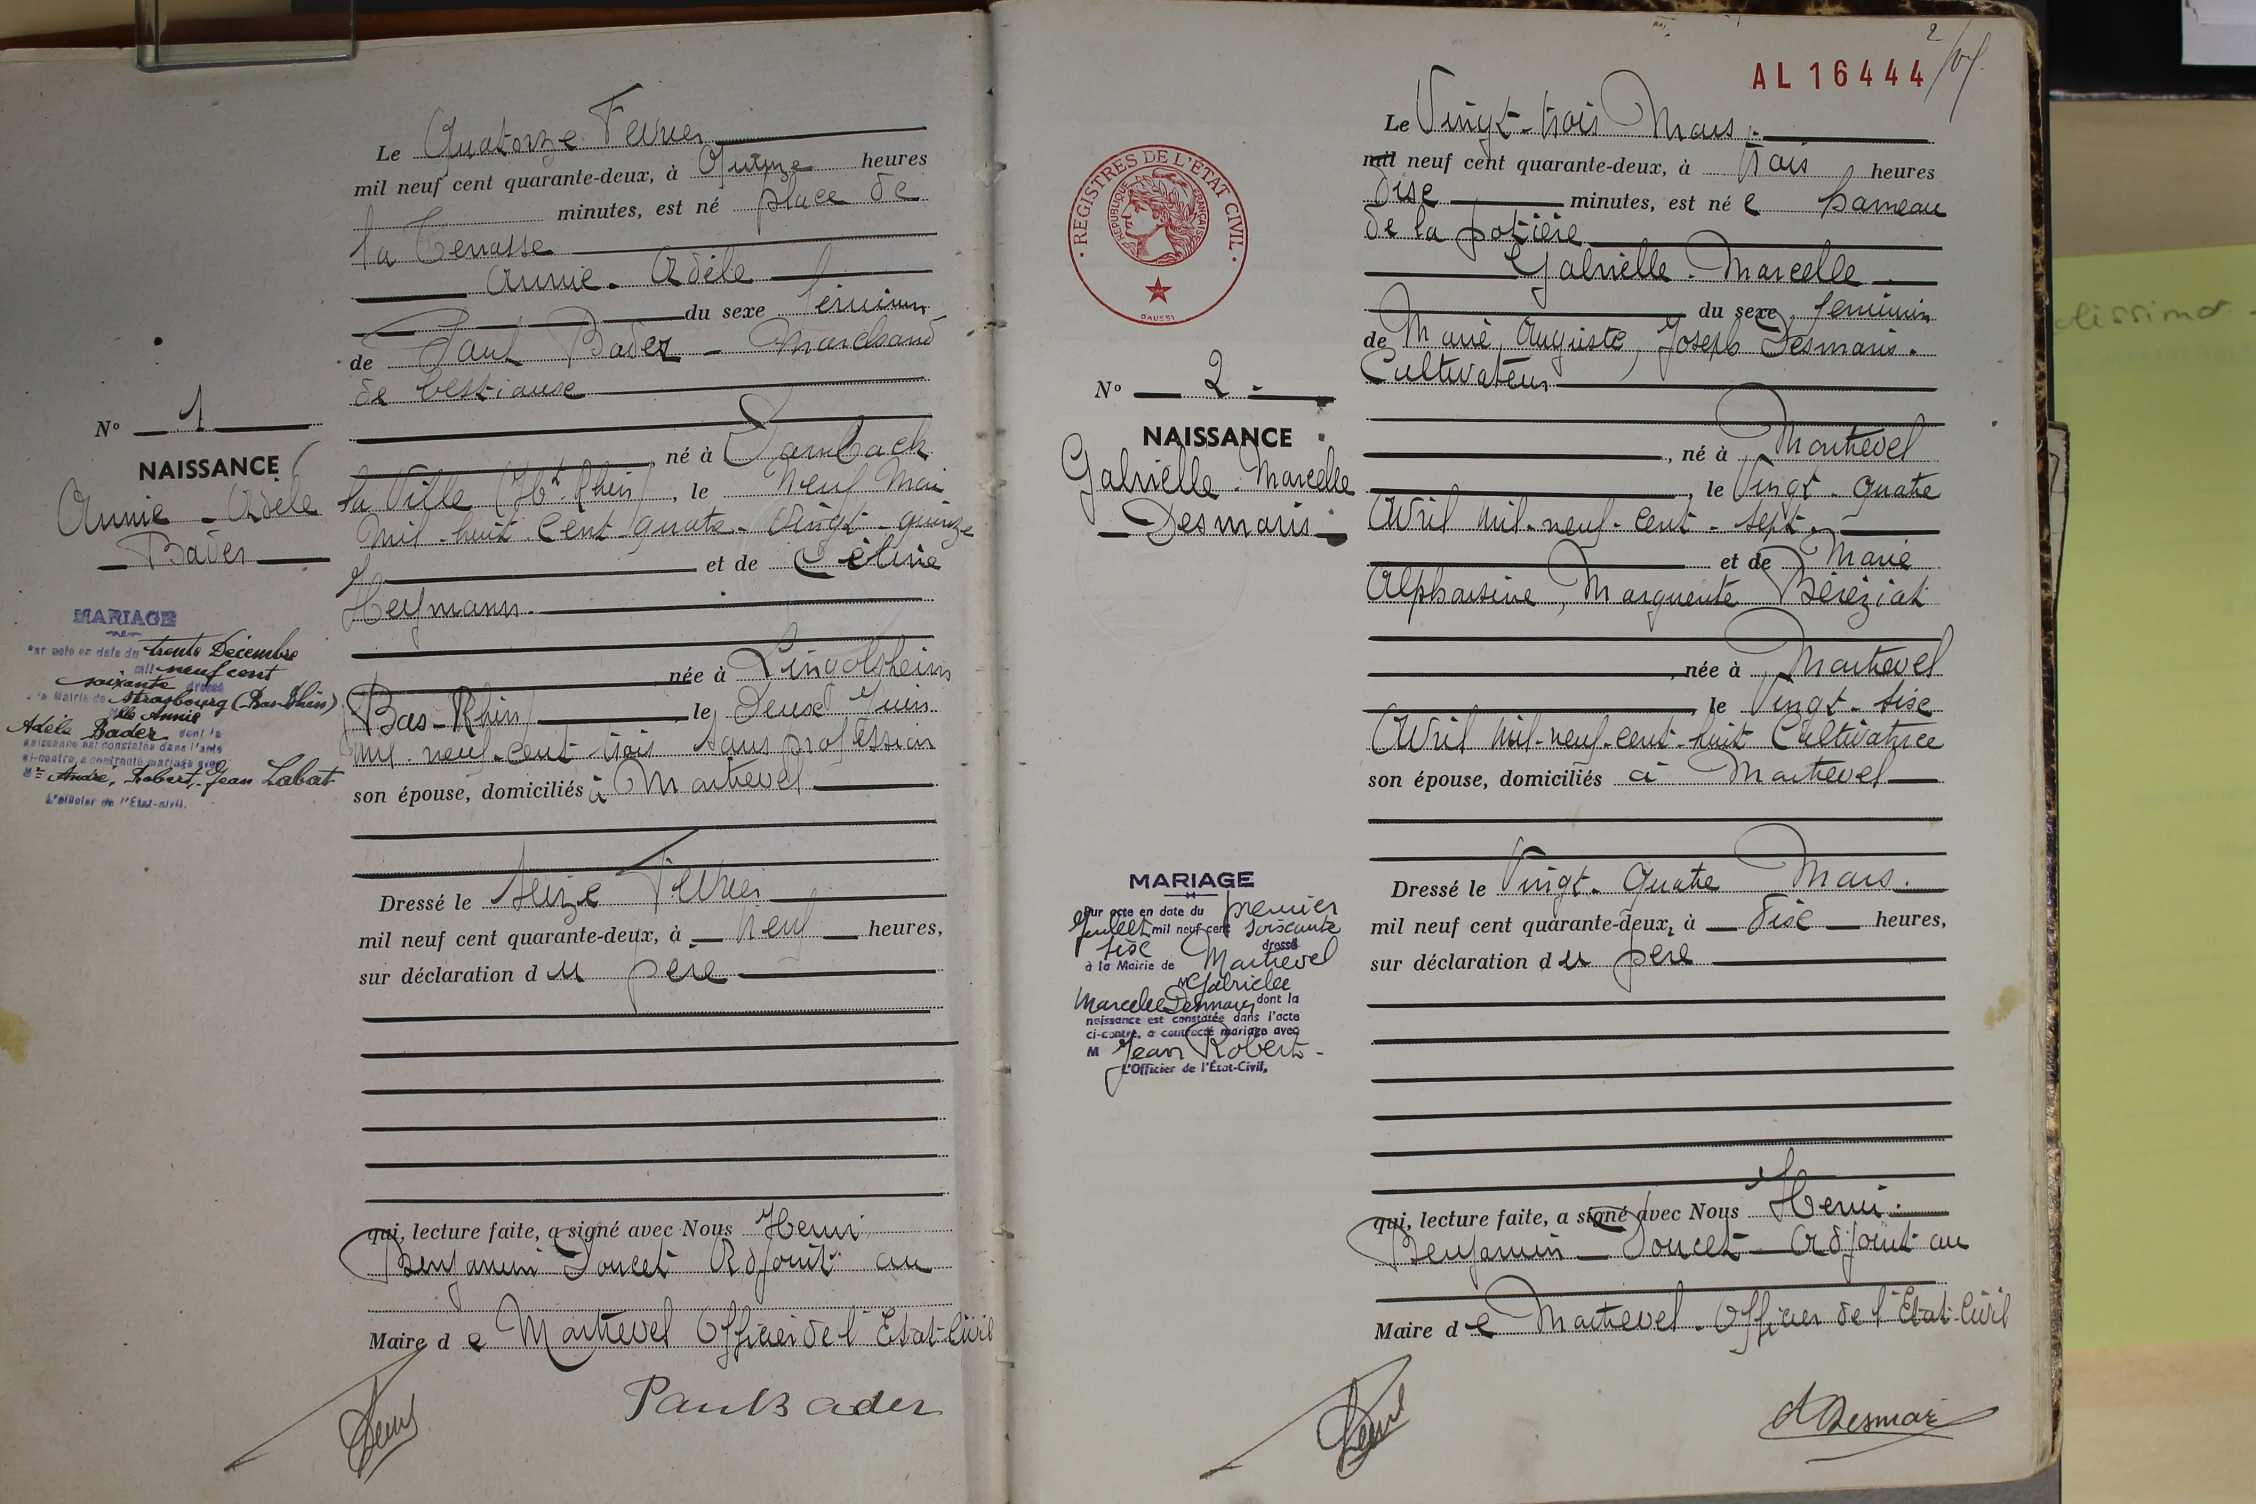 Le Quatorze Fevrier
mil neuf cent quarante-deux, à Quinze heures
minutes, est né place de
la Terrasse
Annie - Adèle
du sexe féminin
de Paul Bader - Marchand
de bestiaux
né à Dambach
la Ville (Ht Rhin), le Neuf Mai
mil-huit-cent-quatre-vingt-quinze
et de Céline
Heymann.
née à Lingolsheim
(Bas-Rhin) le Deux Juin
mil-neuf-cent-trois sans profession
son épouse, domiciliés à Martrevel
Dressé le Seize Fevrier
mil neuf cent quarante-deux, à neuf heures,
sur déclaration du père
qui, lecture faite, a signé avec Nous Henri
Benjamin Doucet Adjoint au
Maire de Martrevel Officier de l'Etat-Civil
Paul Bader
N° 1
NAISSANCE
Annie - Adèle
Bader
MARIAGE
Par acte en date du trente Décembre
mil neuf cent
soixante dressé
à la Mairie de Strasbourg (Bas-Rhin)
Mlle Annie
Adèle Bader dont la
naissance est constatée dans l'acte
ci-contre, a contracté mariage avec
Mr André, Robert, Jean Labat
L'Officier de l'Etat-civil.
AL 16444
REGISTRES DE L'ÉTAT CIVIL
RÉPUBLIQUE FRANÇAISE
DAUSSI
Le Vingt-trois Mars.
mil neuf cent quarante-deux, à trois heures
dix minutes, est née hameau
de la potière
Gabrielle - Marcelle
du sexe féminin
de Marie, Auguste, Joseph Desmaris.
Cultivateur
, né à Martrevel
, le Vingt-quatre
Avril mil-neuf-cent-sept.
et de Marie
Alphonsine, Marguerite Béréziat
, née à Martrevel
, le Vingt-six
Avril mil-neuf-cent-huit Cultivatrice
son épouse, domiciliés à Martrevel
Dressé le Vingt-quatre Mars.
mil neuf cent quarante-deux, à dix heures,
sur déclaration du père
qui, lecture faite, a signé avec Nous Henri
Benjamin Doucet Adjoint au
Maire de Martrevel - Officier de l'Etat-Civil
Desmaris
N° 2
NAISSANCE
Gabrielle - Marcelle
Desmaris
MARIAGE
Par acte en date du premier
Juillet mil neuf cent soixante
six dressé
à la Mairie de Martrevel
Gabrielle
Marcelle Desmaris dont la
naissance est constatée dans l'acte
ci-contre, a contracté mariage avec
M Jean Robert -
L'Officier de l'État-Civil,